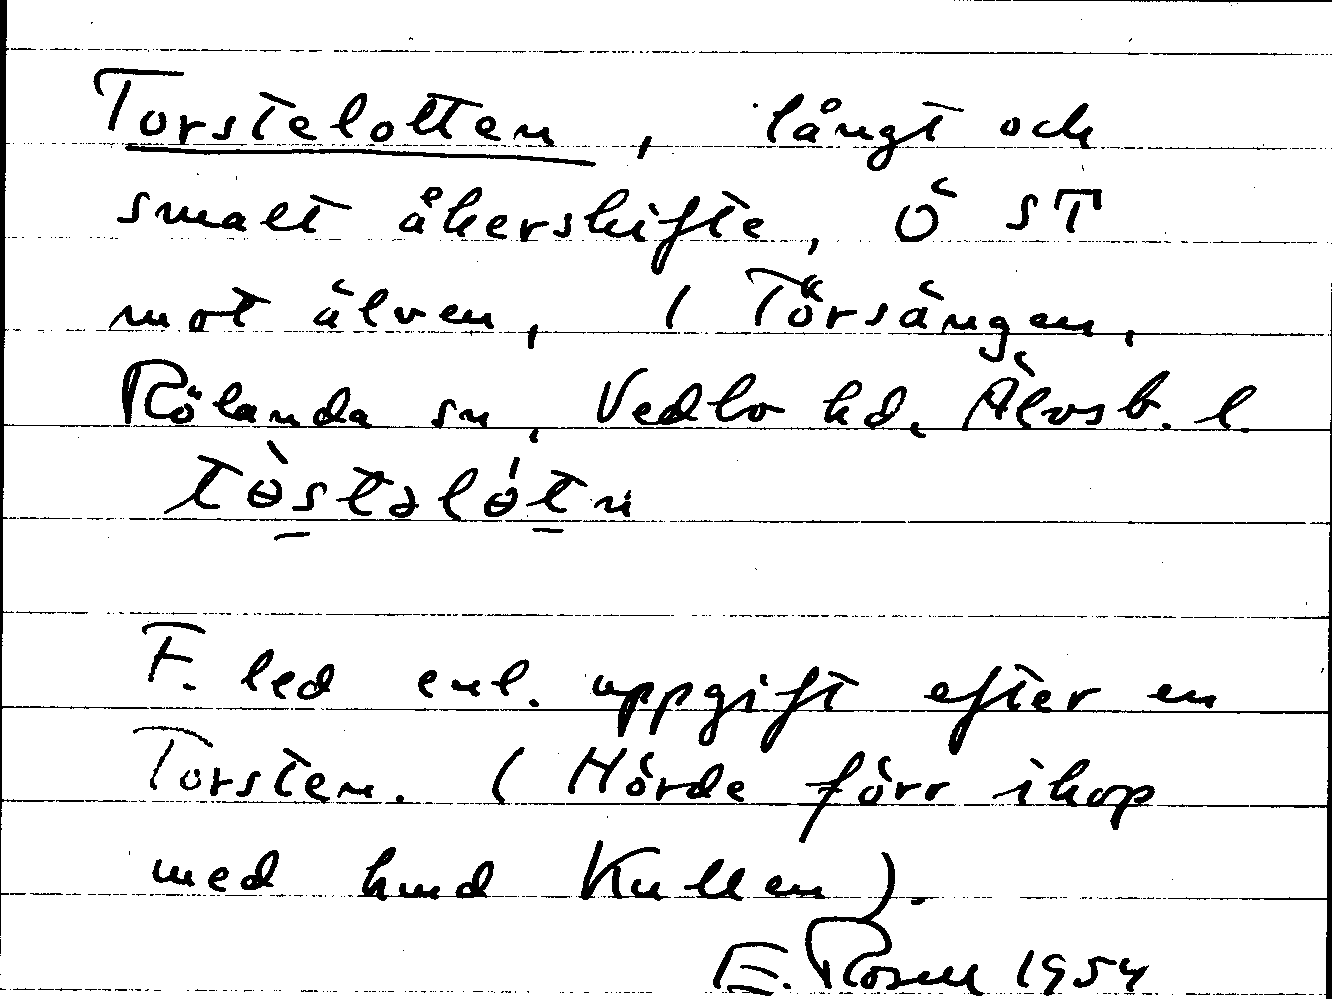 Torstelotten, långt och
smalt åkerskifte, Ö ST
mot älven, / Törsängen,
Rölanda sn, Vedbo hd, Älvsb. l.
tɵ̀stəlɵ́tn̥
F. led enl. uppgift efter en
Torsten. (Hörde förr ihop
med hmd Kullen).
E. Rosell 1954